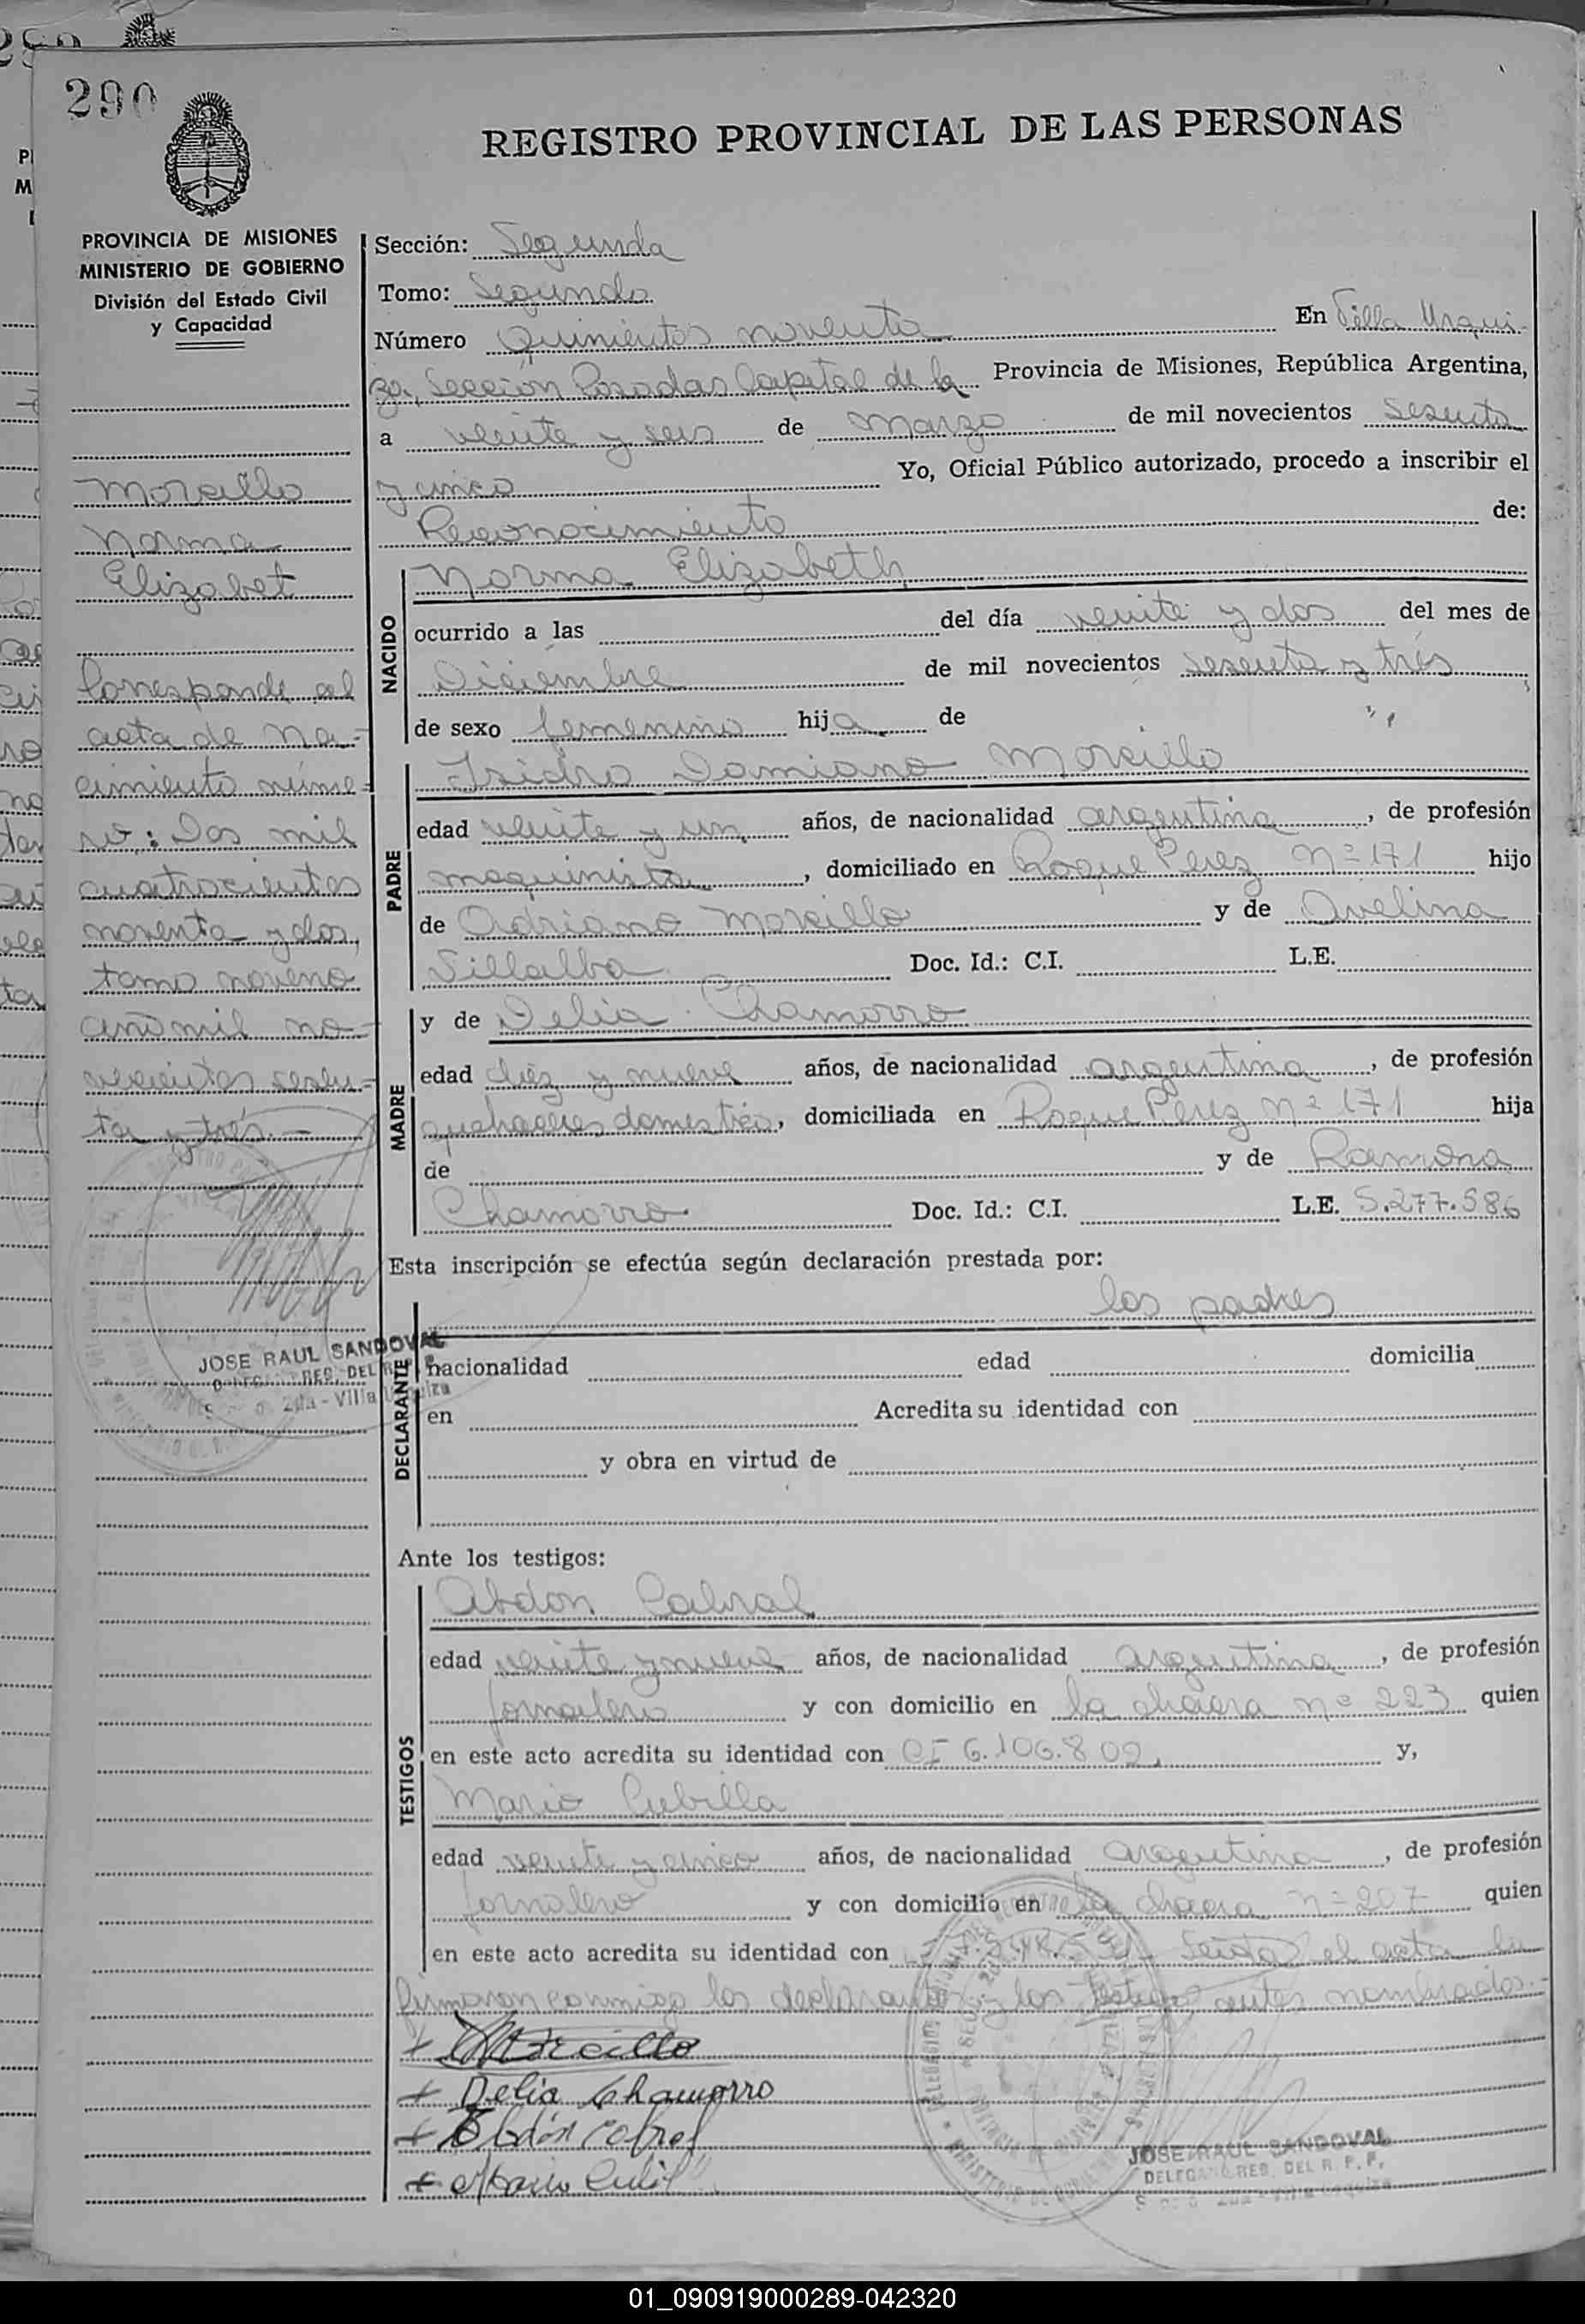 290
REGISTRO PROVINCIAL DE LAS PERSONAS
PROVINCIA DE MISIONES
MINISTERIO DE GOBIERNO
División del Estado Civil
y Capacidad
Morcillo
Norma
Elizabet
Corresponde al
acta de Na-
cimiento núme-
ro: Dos mil
cuatrocientos
noventa y dos,
tomo noveno
año mil no-
vecientos sesen-
ta y trés.-
JOSE RAUL SANDOVAL
Sección: Segunda
Tomo: Segundo
Número Quinientos noventa En Villa Urqui-
za, Sección Posadas Capital de la Provincia de Misiones, República Argentina,
a veinte y seis de Marzo de mil novecientos sesenta
y cinco Yo, Oficial Público autorizado, procedo a inscribir el
Reconocimiento de:
NACIDO
Norma Elizabeth
ocurrido a las del día veinte y dos del mes de
Diciembre de mil novecientos sesenta y trés
de sexo femenino hija de
PADRE
Isidro Damiano Morcillo
edad veinte y un años, de nacionalidad argentina, de profesión
maquinista, domiciliado en Roque Perez Nº 171 hijo
de Adriano Morcillo y de Avelina
Villalba Doc. Id.: C.I. L.E.
MADRE
y de Delia Chamorro
edad diez y nueve años, de nacionalidad argentina, de profesión
quehaceres domestico, domiciliada en Roque Pérez nº 171 hija
de y de Ramona
Chamorro Doc. Id.: C.I. L.E. 5.277.586
Esta inscripción se efectúa según declaración prestada por:
los padres
DECLARANTE
nacionalidad edad domicilia
en Acredita su identidad con
y obra en virtud de
Ante los testigos:
TESTIGOS
Abdon Cabral
edad veinte y nueve años, de nacionalidad argentina, de profesión
jornalero y con domicilio en la chacra nº 223 quien
en este acto acredita su identidad con CI 6.106.802, y,
Mario Cubilla
edad veinte y cinco años, de nacionalidad argentina, de profesión
jornalero y con domicilio en la chacra nº 207 quien
en este acto acredita su identidad con Leida el acta la
firmaron conmigo los declarantes y los testigos antes nombrados.-
+ Morcillo
+ Delia Chamorro
+ Abdón Cabral
+ Mario Cubil
JOSE RAUL SANDOVAL
DELEGADO REG. DEL R. P. P.
01_090919000289-042320